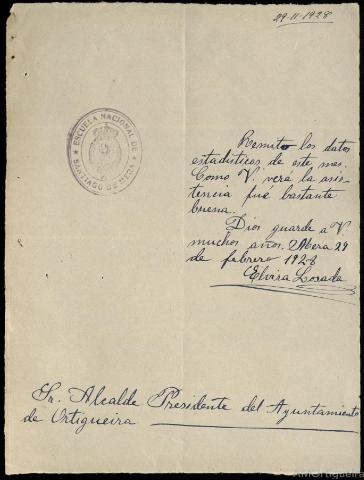 29-II-1928
ESCUELA NACIONAL DE
SANTIAGO DE MERA
Remito los datos
estadísticos de este mes.
Como V. verá la asis-
tencia fué bastante
buena.
Dios guarde a V.
muchos años. Mera 29
de febrero 1928
Elvira Losada
Sr. Alcalde Presidente del Ayuntamiento
de Ortigueira
AMOrtigueira